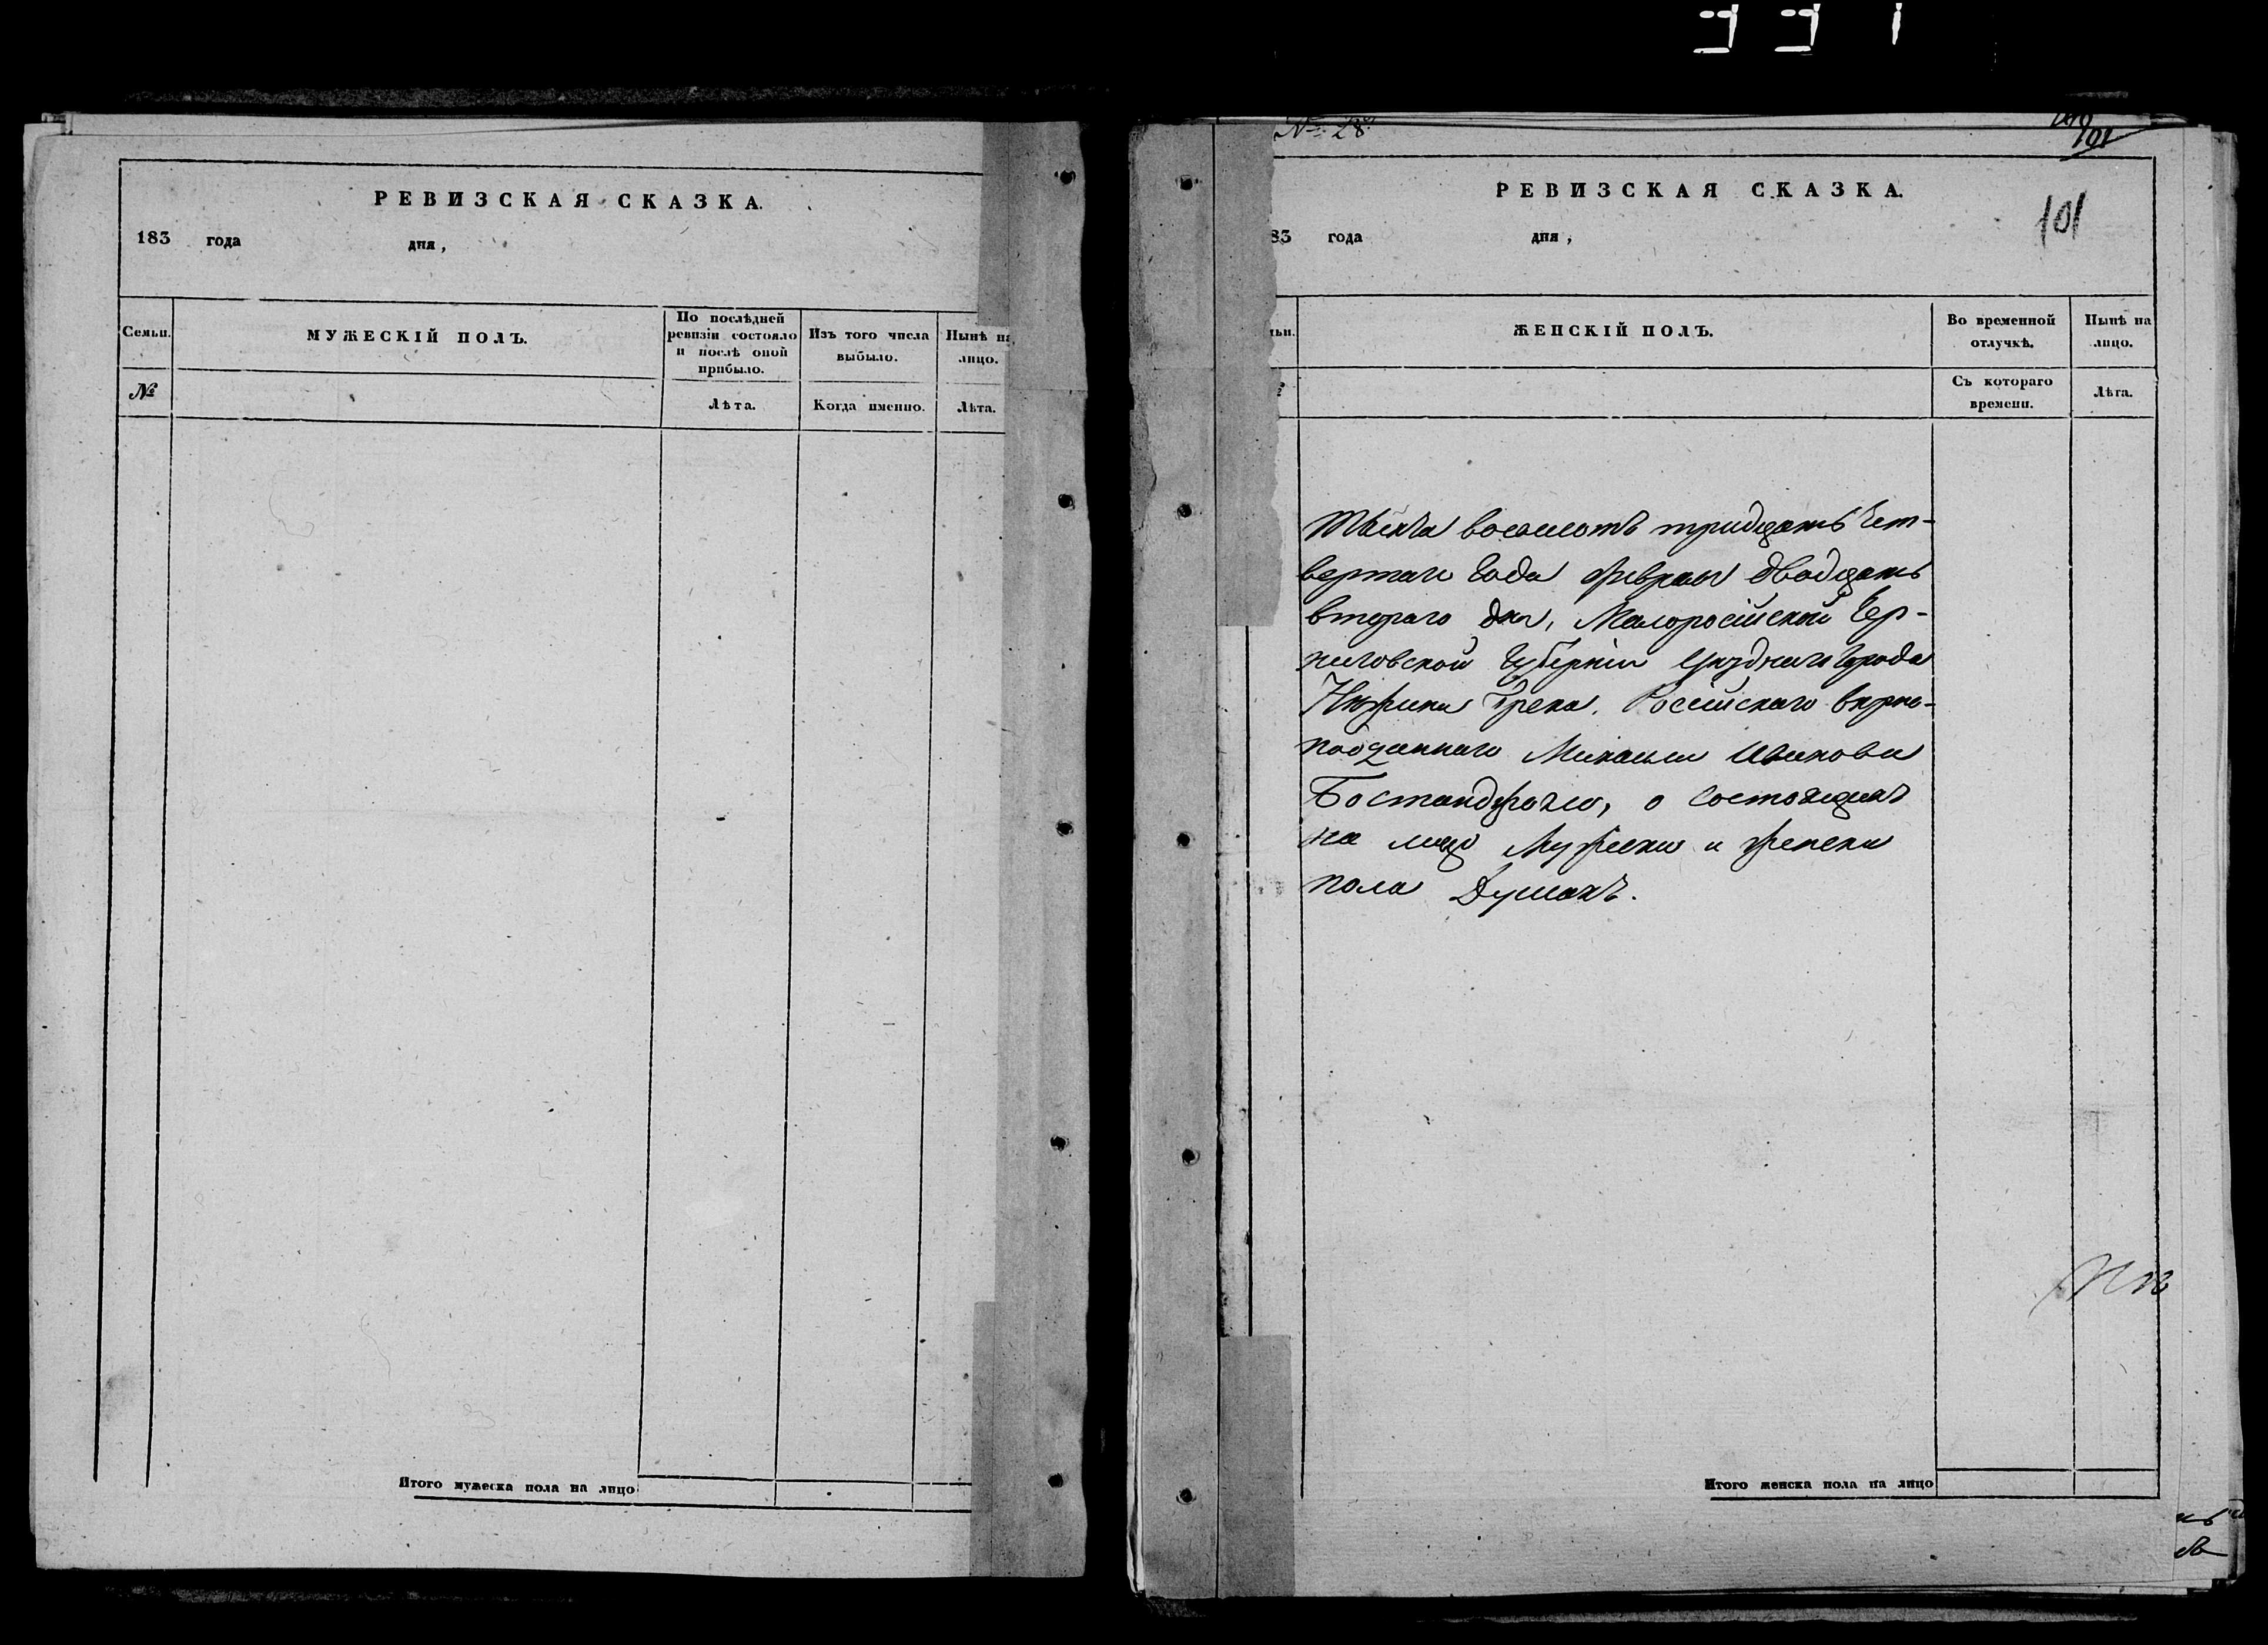 РЕВИЗСКАЯ СКАЗКА.
183 года дня,
Семьи.
МУЖЕСКІЙ ПОЛЪ.
По послѣдней
ревизіи состояло
и послѣ оной
прибыло.
Изъ того числа
выбыло.
Нынѣ на
лицо.
№
Лѣта.
Когда именно.
Лѣта.
Итого мужеска пола на лицо
№ 28
101
РЕВИЗСКАЯ СКАЗКА.
101
83 года дня,
ьи.
ЖЕНСКІЙ ПОЛЪ.
Во временной
отлучкѣ.
Нынѣ на
лицо.
Съ котораго
времени.
Лѣта.
Тысяча восемсотъ тридцать чет-
вертаго года февраля двадцать
втораго дня, Малоросійской Чер-
ниговской Губерніи уѣзднаго города
Нѣжина Грека, Російскаго вѣрно-
подданнаго Михаила Иванова
Бостанджогло, о состоящихъ
на лицо мужеска и женска
пола душахъ.
Итого женска пола на лицо